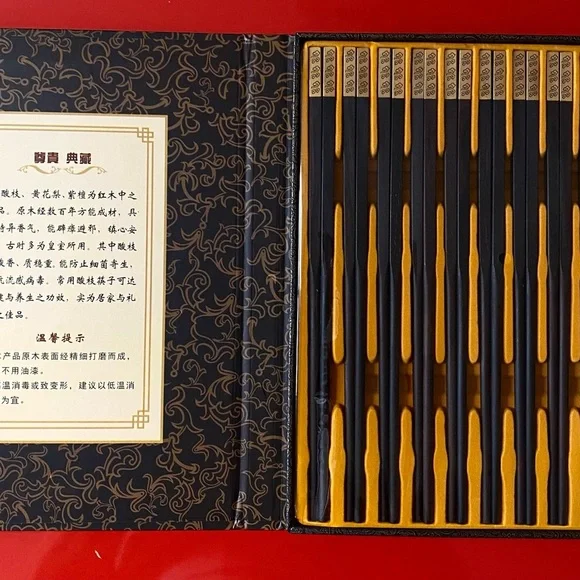 尊貴 典藏
酸枝、黄花梨、紫檀为红木中之
品。原木经数百年方能成材,具
特异香气,能辟瘴避邪,镇心安
。古时多为皇室所用。其中酸枝
酸香、质稳重。能防止细菌寄生,
抗流感病毒。常用酸枝筷子可达
健与养生之功效,实为居家与礼
之佳品。
温馨提示
产品原木表面经精细打磨而成,
不用油漆。
高温消毒或致变形,建议以低温消
为宜。